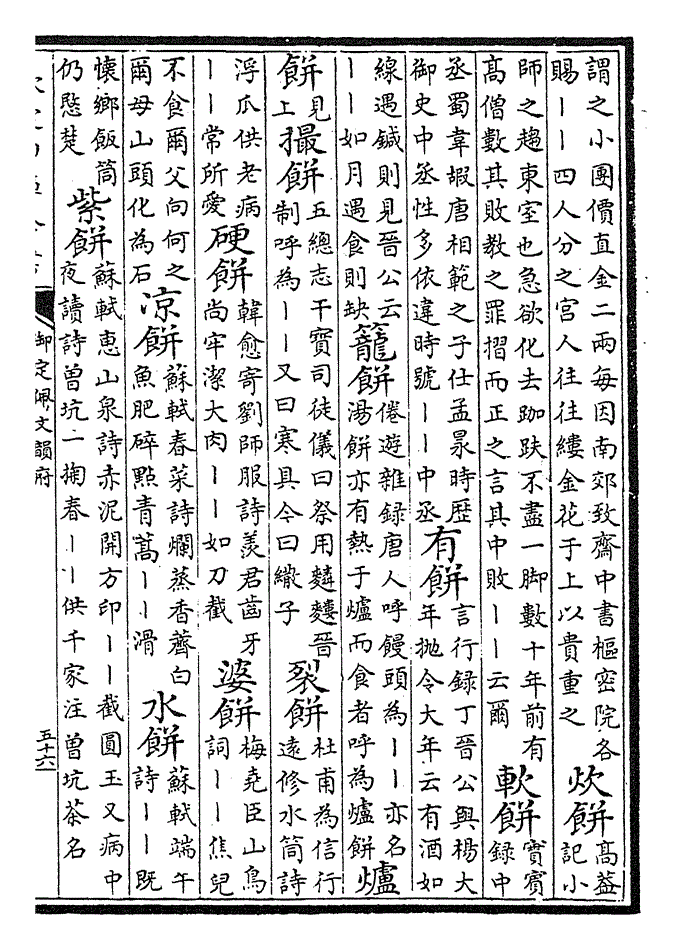 謂之小團價直金二兩每因南郊致齋中書樞密院各
賜丨丨四人分之宮人往往縷金花于上以貴重之
炊餅
高益
記小
師之趨東室也急欲化去跏趺不盡一脚數十年前有
高僧數其敗教之罪摺而正之言其中敗丨丨云爾
軟餅
實賓
錄中
丞蜀韋嘏唐相範之子仕孟昶時歷
御史中丞性多依違時號丨丨中丞
有餅
言行錄丁晉公與楊大
年抛令大年云有酒如
線遇鍼則見晉公云
丨丨如月遇食則缺
籠餅
倦遊雜錄唐人呼饅頭為丨丨亦名
湯餅亦有熱于爐而食者呼為爐餅
爐
餅
見
上
撮餅
五總志干寶司徒儀曰祭用晉
制呼為丨丨又曰寒具今曰繖子
裂餅
杜甫為信行
遠修水筒詩
浮瓜供老病
丨丨常所愛
硬餅
韓愈寄劉師服詩羨君齒牙
尚牢潔大肉丨丨如刀截
婆餅
梅堯臣山鳥
詞丨丨焦兒
不食爾父向何之
爾母山頭化為石
凉餅
蘇軾春菜詩爛蒸香薺白
魚肥碎點青蒿丨丨滑
水餅
蘇軾端午
詩丨丨既
懷鄉飯筒
仍愍楚
紫餅
蘇軾惠山泉詩赤泥開方印丨丨截圓玉又病中
夜讀詩曾坑一掬春丨丨供千家注曾坑茶名
御定佩文韻府
五十六